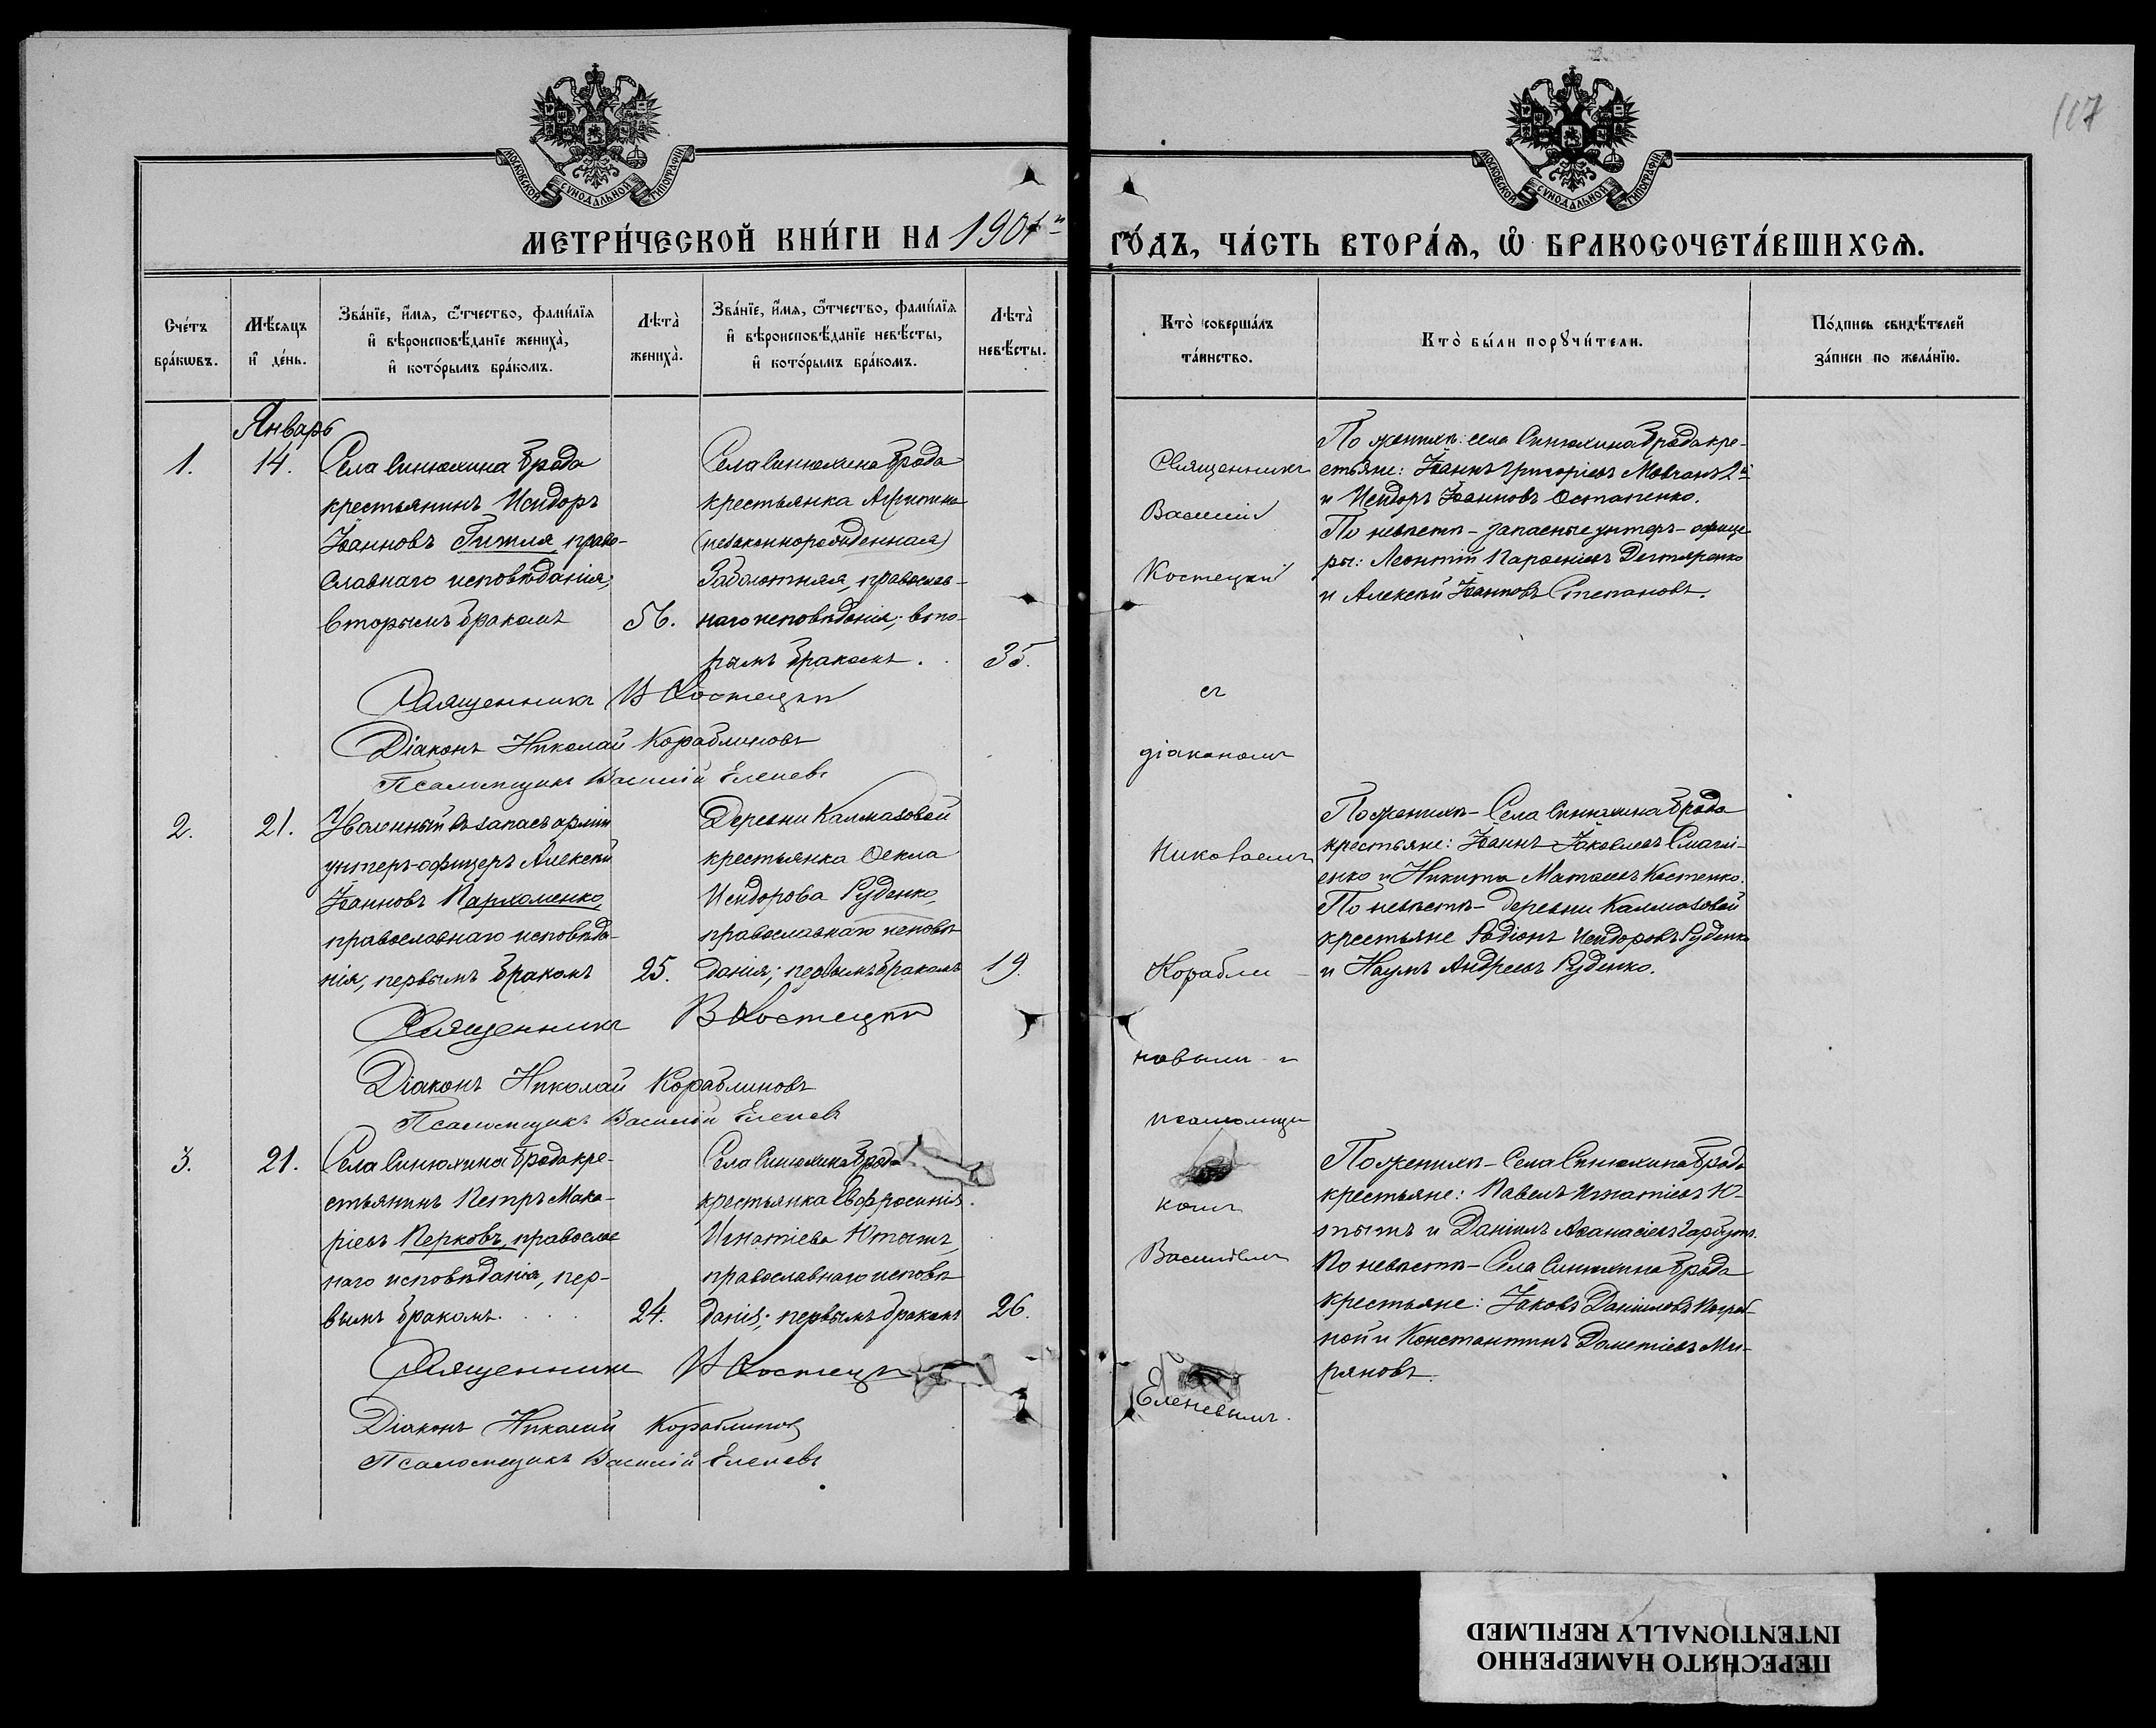 117
МОСКОВСКОЙ СѴНОДАЛЬНОЙ ТИПОГРАФІИ
МОСКОВСКОЙ СѴНОДАЛЬНОЙ ТИПОГРАФІИ
МЕТРИ́ЧЕСКОЙ КНИ́ГИ НА 1901й
ГО́ДЪ, ЧА́СТЬ ВТОРА́Ѧ, Ѡ БРАКОСОЧЕТА́ВШИХСѦ.
Сче́тъ бра́кѡвъ.
Мѣ́сяцъ и де́нь.
Зва́нїе, и҆́мя, ѻ҆́тчество, фами́лїя и҆ вѣроисповѣ́данїе жениха̀, и҆ кото́рымъ бра́комъ.
Лѣта̀ жениха̀.
Зва́нїе, и҆́мя, ѻ҆́тчество, фами́лїя и҆ вѣроисповѣ́данїе невѣ́сты, и҆ кото́рымъ бра́комъ.
Лѣта̀ невѣ́сты.
Кто̀ соверша́лъ та́инство.
Кто̀ бы́ли порꙋчи́тели.
По́дпись свидѣ́телей за́писи по жела́нїю.
Январь
1.
14.
Села Синюхина Брода
крестьянинъ Исидоръ
Іоанновъ Гижля, право-
славнаго исповѣданія;
вторымъ бракомъ
56.
Села Синюхина Брода
крестьянка
(незаконнорожденная)
Заболотняя, православ-
наго исповѣданія; вто-
рымъ бракомъ.
35.
Священникъ В Костецкій
Діаконъ Николай Кораблиновъ
Псаломщикъ Василій Еленевъ
2.
21.
Уволенный въ запасъ арміи
унтеръ-офицеръ Алексѣй
Іоанновъ Пархоменко,
православнаго исповѣда-
нія, первымъ бракомъ
25.
Деревни Калмазовой
крестьянка Ѳекла
Исидорова Руденко,
православнаго исповѣ-
данія; первымъ бракомъ
19.
Священникъ В Костецкій
Діаконъ Николай Кораблиновъ
Псаломщикъ Василій Еленевъ
3.
21.
Села Синюхина Брода кре-
стьянинъ Петръ Мака-
ріевъ Перковъ, православ
наго исповѣданія, пер-
вымъ бракомъ.
24.
Села Синюхина Брода
крестьянка Евфросинія
Игнатіева Ютышъ,
православнаго исповѣ-
данія; первымъ бракомъ
26.
Священникъ В Костецкій
Діаконъ Николай Кораблиновъ
Псаломщикъ Василій Еленевъ
Священникъ
Василій
Костецкій
съ
діакономъ
Николаемъ
Корабли-
новымъ и
псаломщи
комъ
Василіемъ
Еленевымъ.
По женихѣ: села Синюхина Брода кре-
стьяне: Іоаннъ Григоріевъ Мовчанъ 2й
и Исидоръ Іоанновъ Остапенко.
По невѣстѣ - запасные унтеръ-офице
ры: Леонтій Парѳеніевъ Дегтяренко
и Алексѣй Іоанновъ Степановъ.
По женихѣ - Села Синюхина Брода
крестьяне: Іоаннъ Іаковлевъ Смаглі-
енко и Никита Матѳеевъ Костенко.
По невѣстѣ - деревни Калмазовой
крестьяне Родіонъ Исидоровъ Руденко
и Наумъ Андреевъ Руденко.
По женихѣ - Села Синюхина Брода
крестьяне: Павелъ Игнатіевъ Ю-
тышъ и Даніилъ Аѳанасіевъ Гарбузъ.
По невѣстѣ - Села Синюхина Брода
крестьяне: Іаковъ Даніиловъ Погріб-
ной и Константинъ Дометіевъ Ми-
ряновъ.
ПЕРЕСНЯТО НАМЕРЕННО
INTENTIONALLY REFILMED